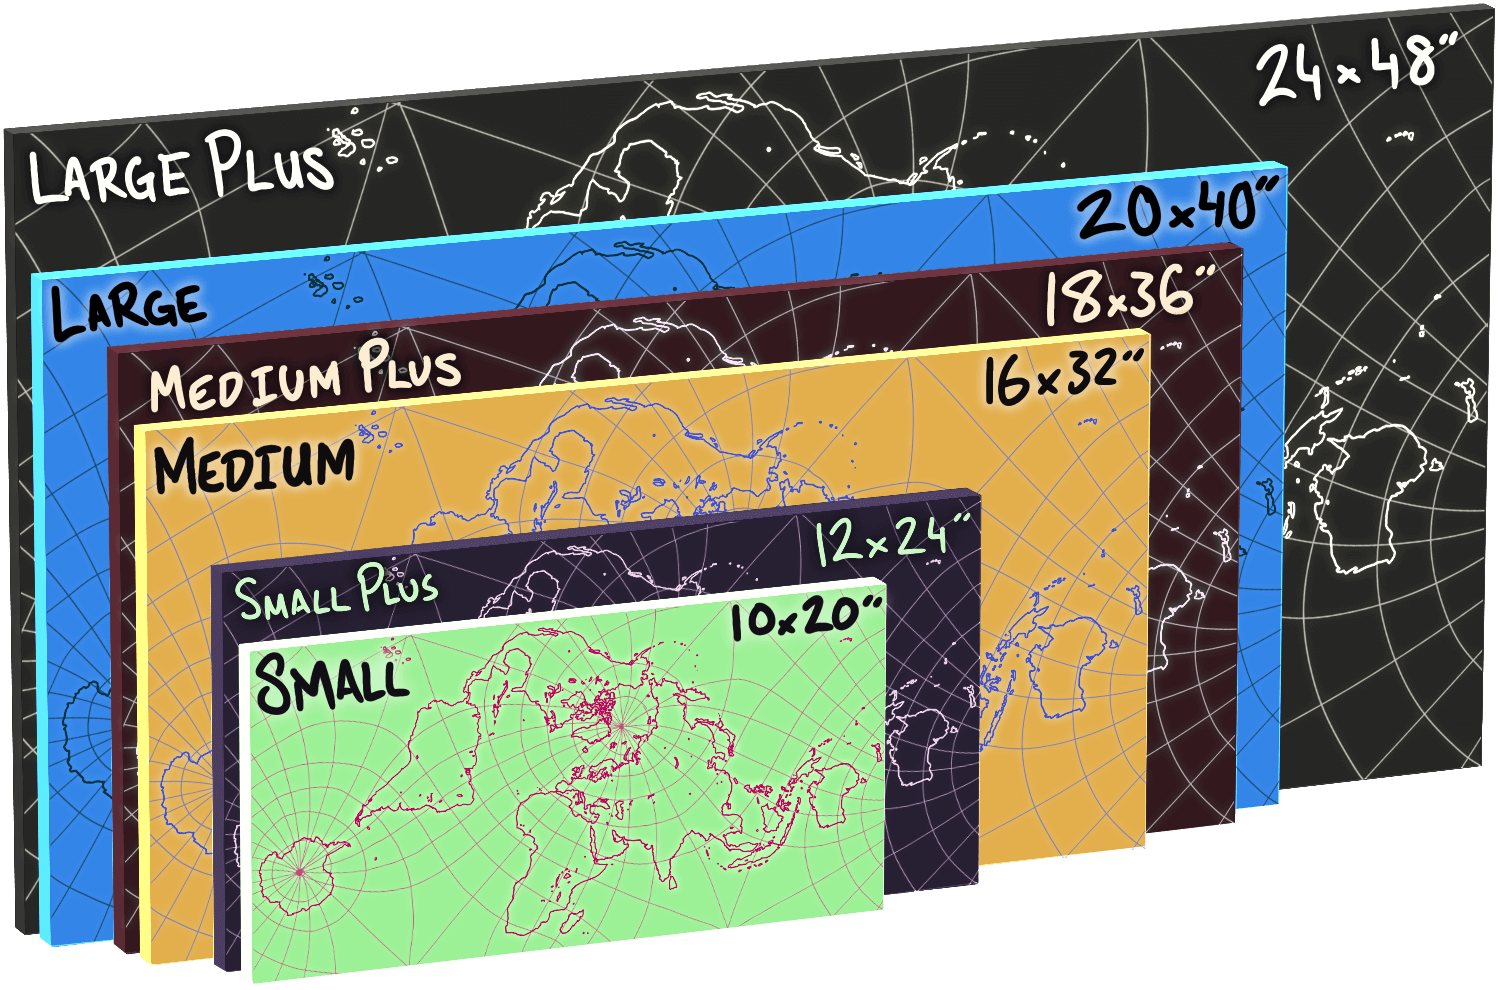 Large Plus 24 x 48"
Large 20x40"
Medium Plus 18x36"
Medium 16x32"
Small Plus 12x24"
Small 10x20"